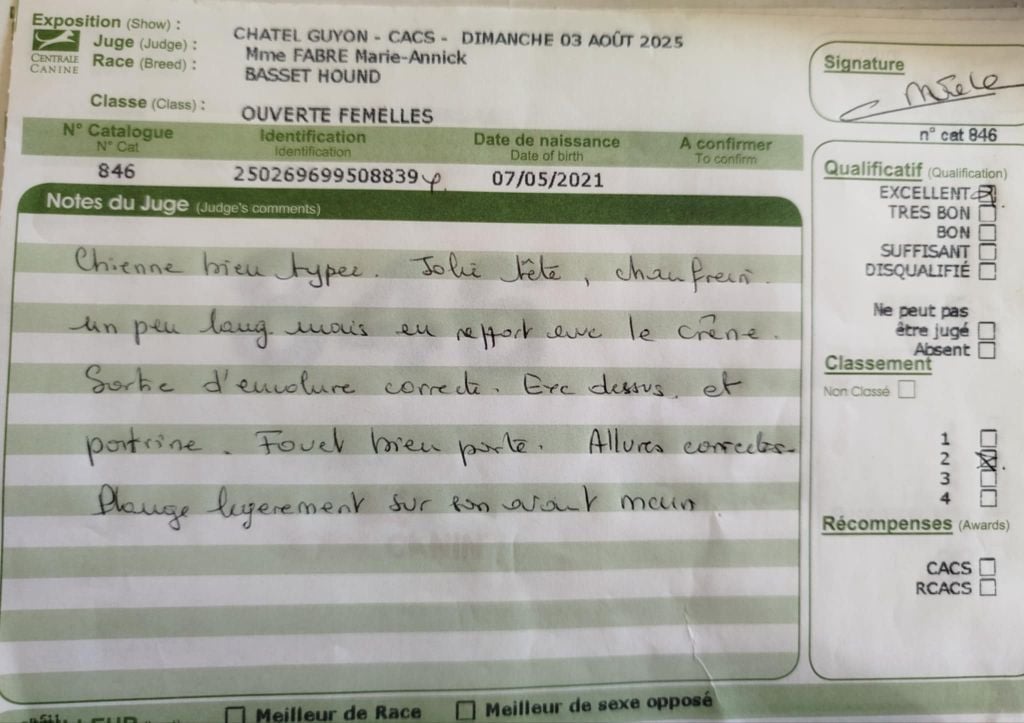 Exposition (Show) : CHATEL GUYON - CACS - DIMANCHE 03 AOÛT 2025
Juge (Judge) : Mme FABRE Marie-Annick
CENTRALE CANINE
Race (Breed) : BASSET HOUND
Classe (Class) : OUVERTE FEMELLES
N° Catalogue Identification Date de naissance A confirmer
N° Cat Identification Date of birth To confirm
846 250269699508839 07/05/2021
Notes du Juge (Judge's comments)
Chienne bien typee. Jolie tête, chanfrein
un peu long mais en rapport avec le crâne.
Sortie d'encolure correcte. Exc dessus, et
poitrine. Fouet bien porté. Allures correctes
Plonge legerement sur son avant main
Signature
n° cat 846
Qualificatif (Qualification)
EXCELLENT
TRES BON
BON
SUFFISANT
DISQUALIFIÉ
Ne peut pas
être jugé
Absent
Classement
Non Classé
1
2
3
4
Récompenses (Awards)
CACS
RCACS
Meilleur de Race Meilleur de sexe opposé